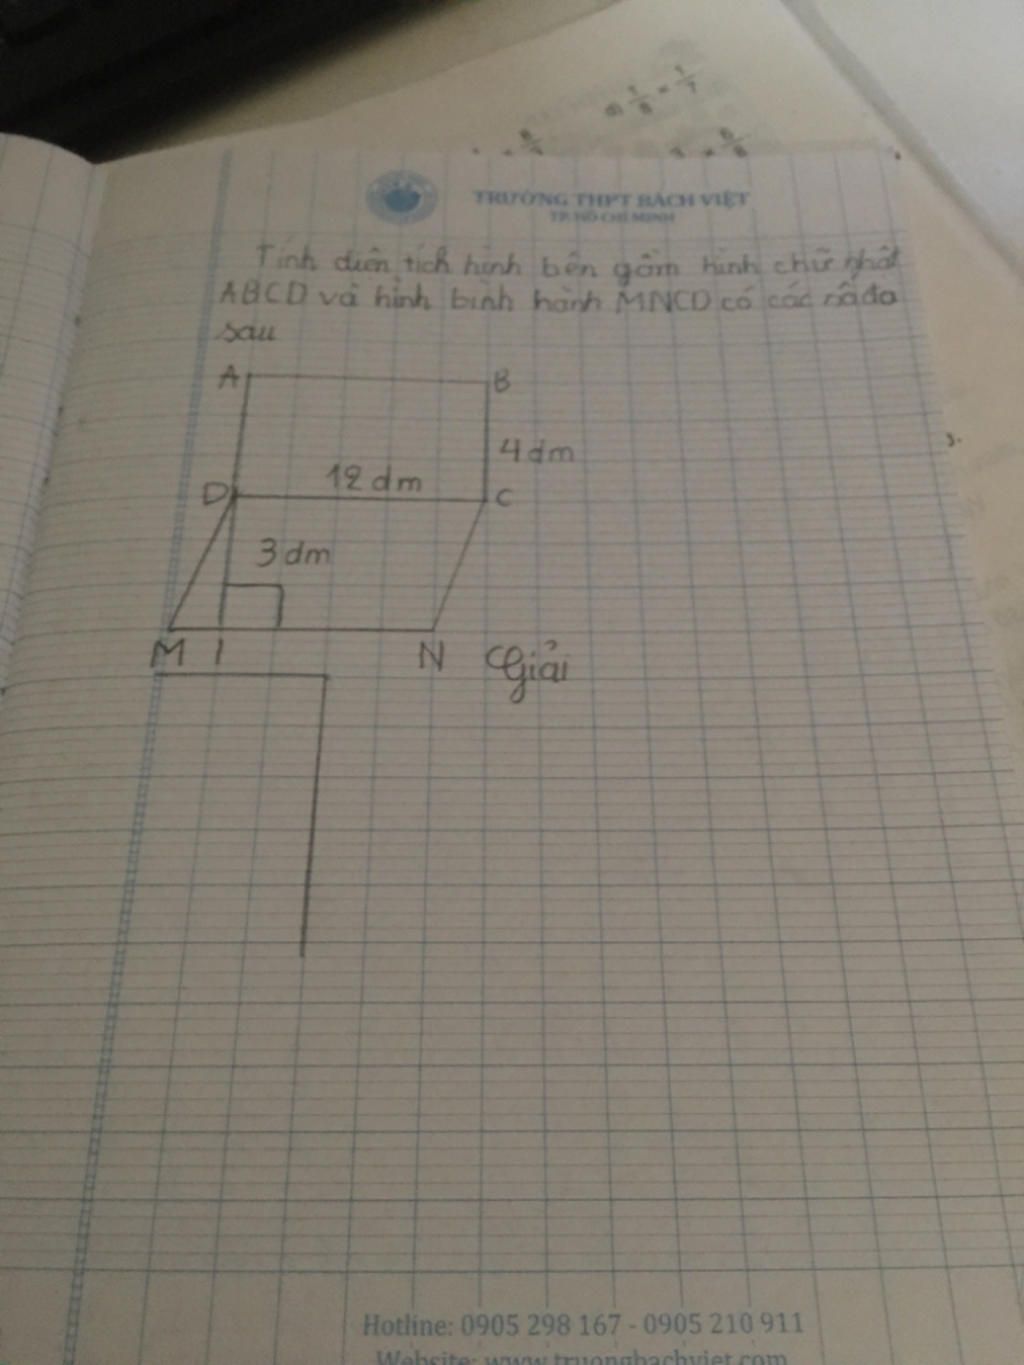 a) 1/8 = 1/7
TRƯỜNG THPT BÁCH VIỆT
TP. HỒ CHÍ MINH
Tính diện tích hình bên gồm hình chữ nhật
ABCD và hình bình hành MNCD có các
sau
A B
4dm
12 dm
D C
3 dm
M I N Giải
Hotline: 0905 298 167 - 0905 210 911
Website: www.truongbachviet.com